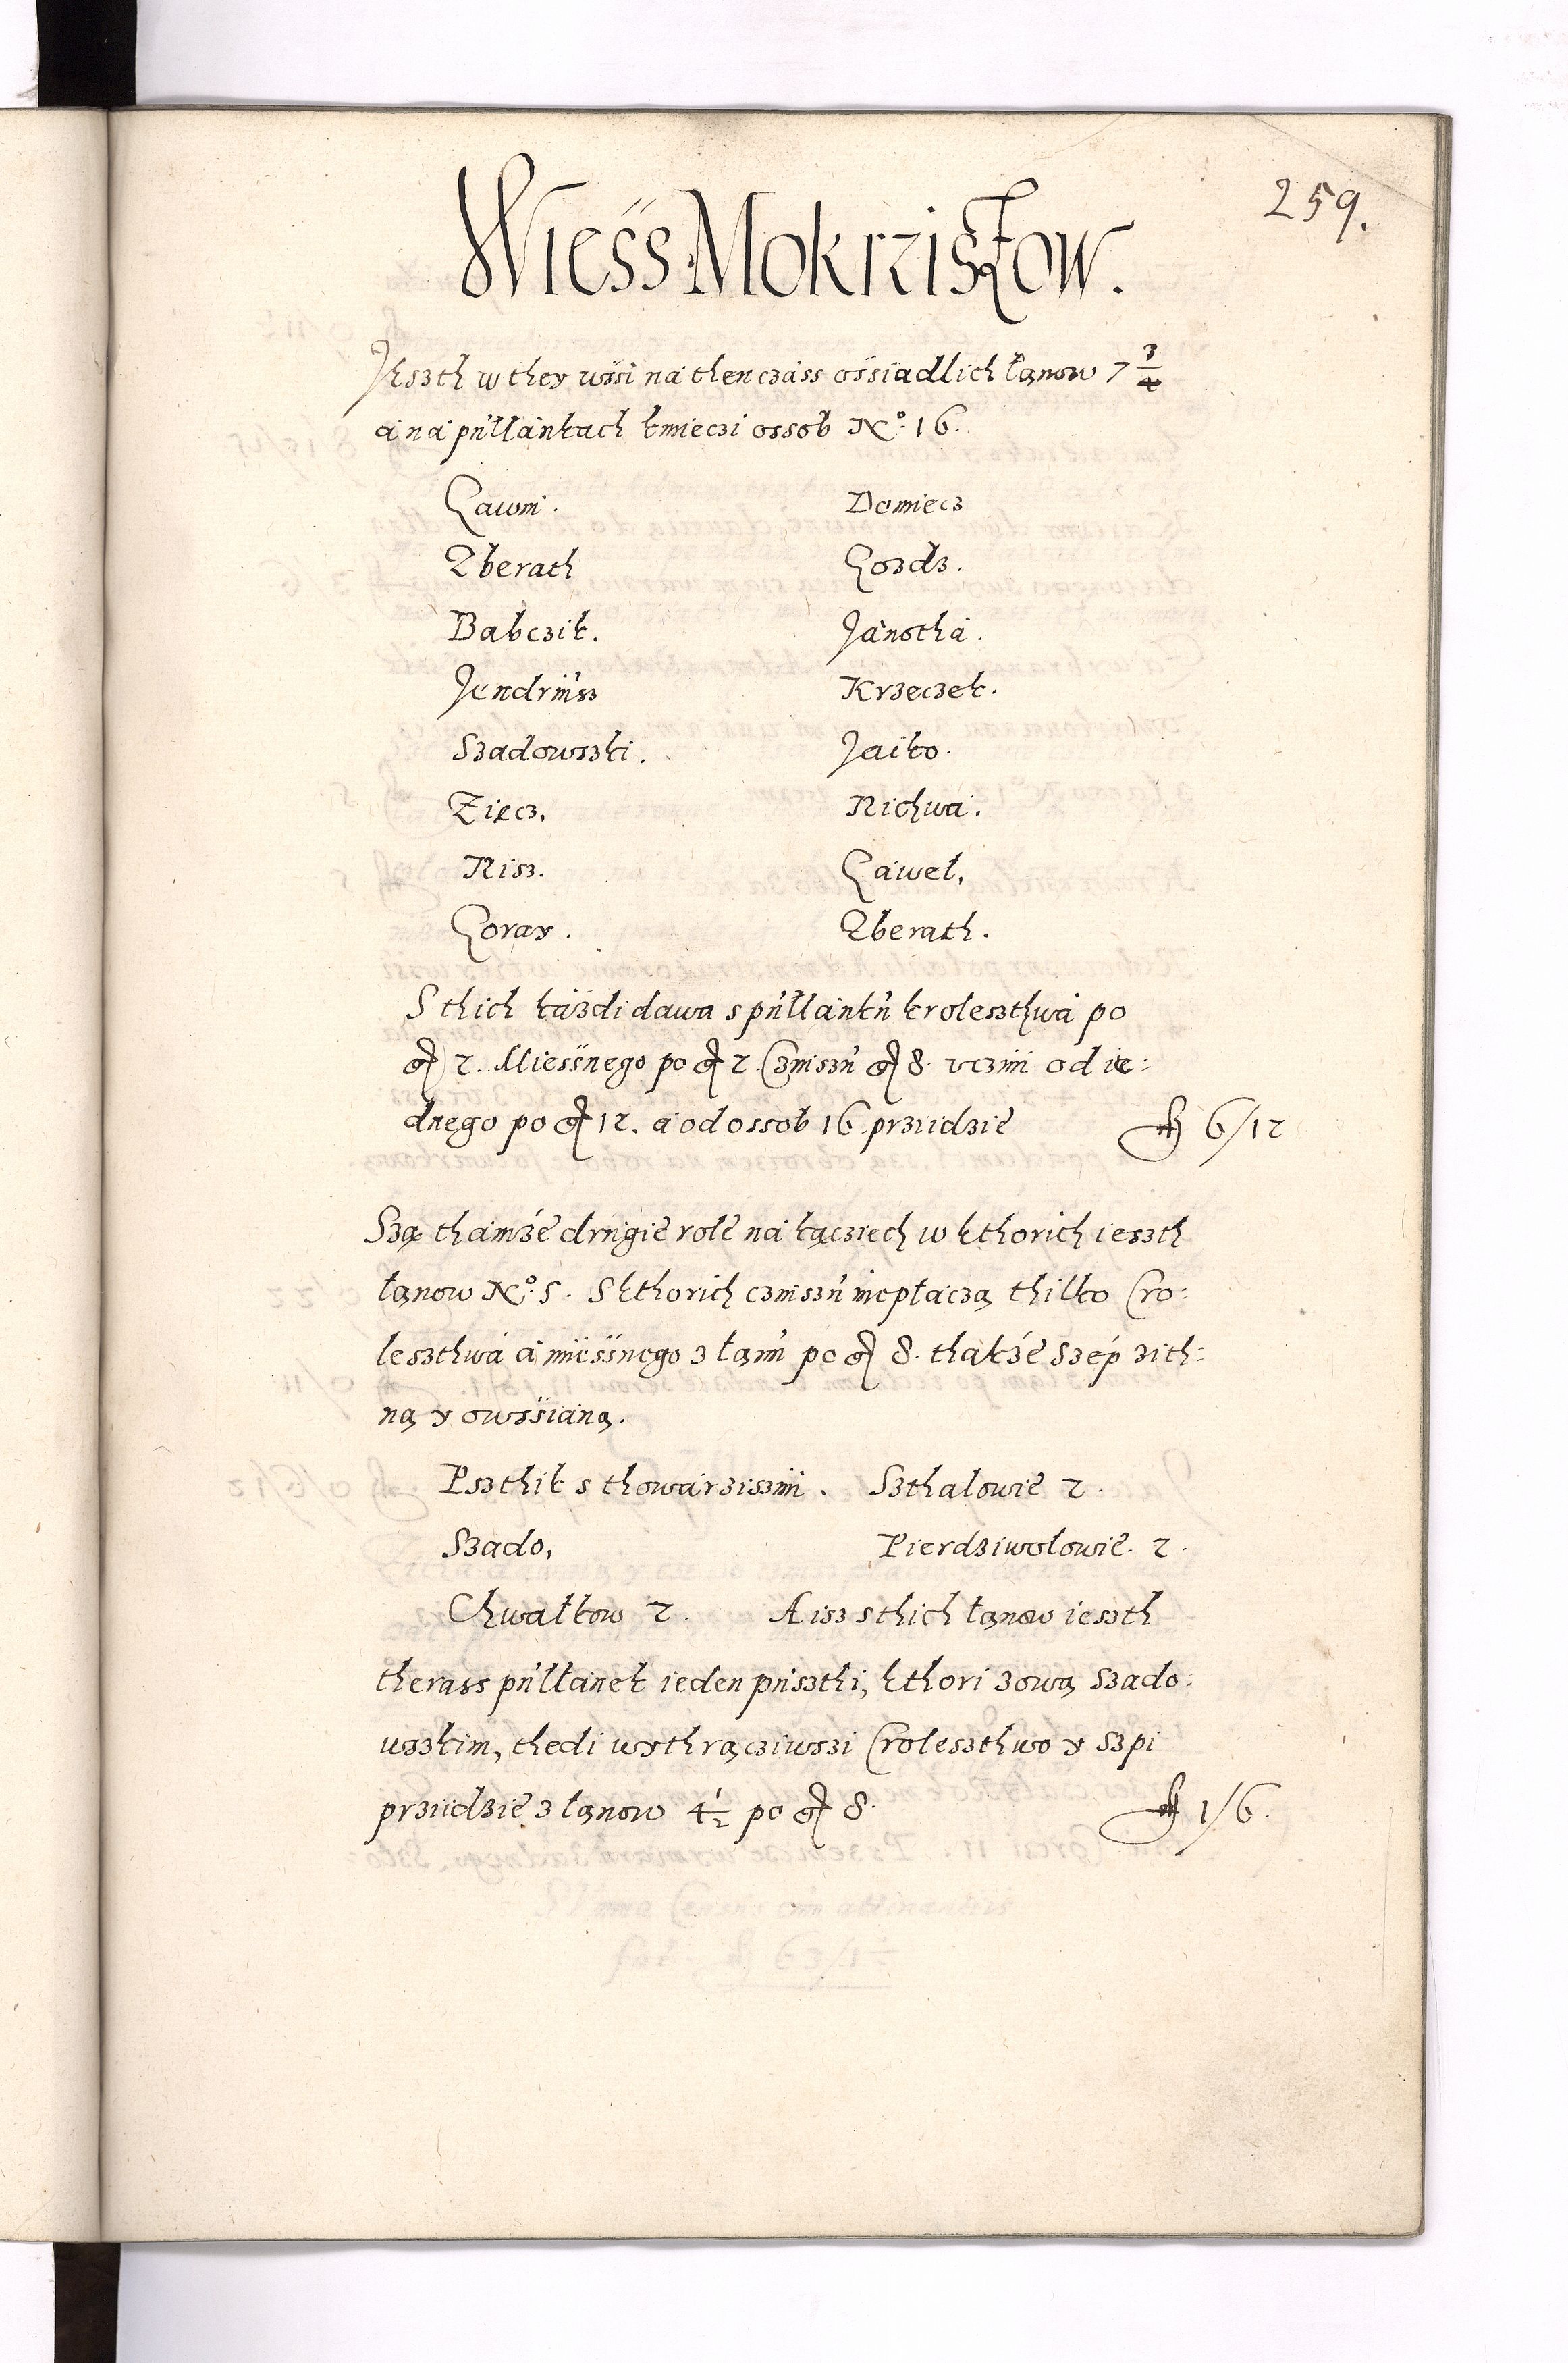 259.
Wiess Mokrziszow.
Jeszth w they wssi na then czass ossiadlich łanow 7 3/4
a na pułłankach kmieczi ossob No: 16.
Gawni. Domiecz
Zberath Gozdz.
Babczik. Janotha.
Jendrusz Krzeczek.
Szadowszki. Jaiko.
Zięcz. Nichwa.
Nisz. Gaweł,
Goray. Zberath.
S thich kazdi dawa s pułłanku kroleszthwa po
gr 2. Miessnego po gr 2. Czinszu gr 8. vczini od ie:
dnego po gr 12. a od ossob 16 prziidzie fl 6/12
Szą thamze drugie role na łączech w kthorich ieszth
łanow No: 5. S kthorich czinszu nieplaczą thilko Cro:
leszthwa a miessnego z łanu po gr 8. thakze szep zith:
ną y owssianą.
Pszthik s thowarziszmi. Szthalowie 2.
Szado, Pierdziwolowie. 2.
Chwałkow 2. A isz s thich łanow ieszth
therass pułłanek ieden puszthi, kthori zową Szado:
wszkim, thedi wythrącziwszi Croleszthwo y szpi
prziidzie z łanow 4 1/2 po gr 8. fl 1/6.